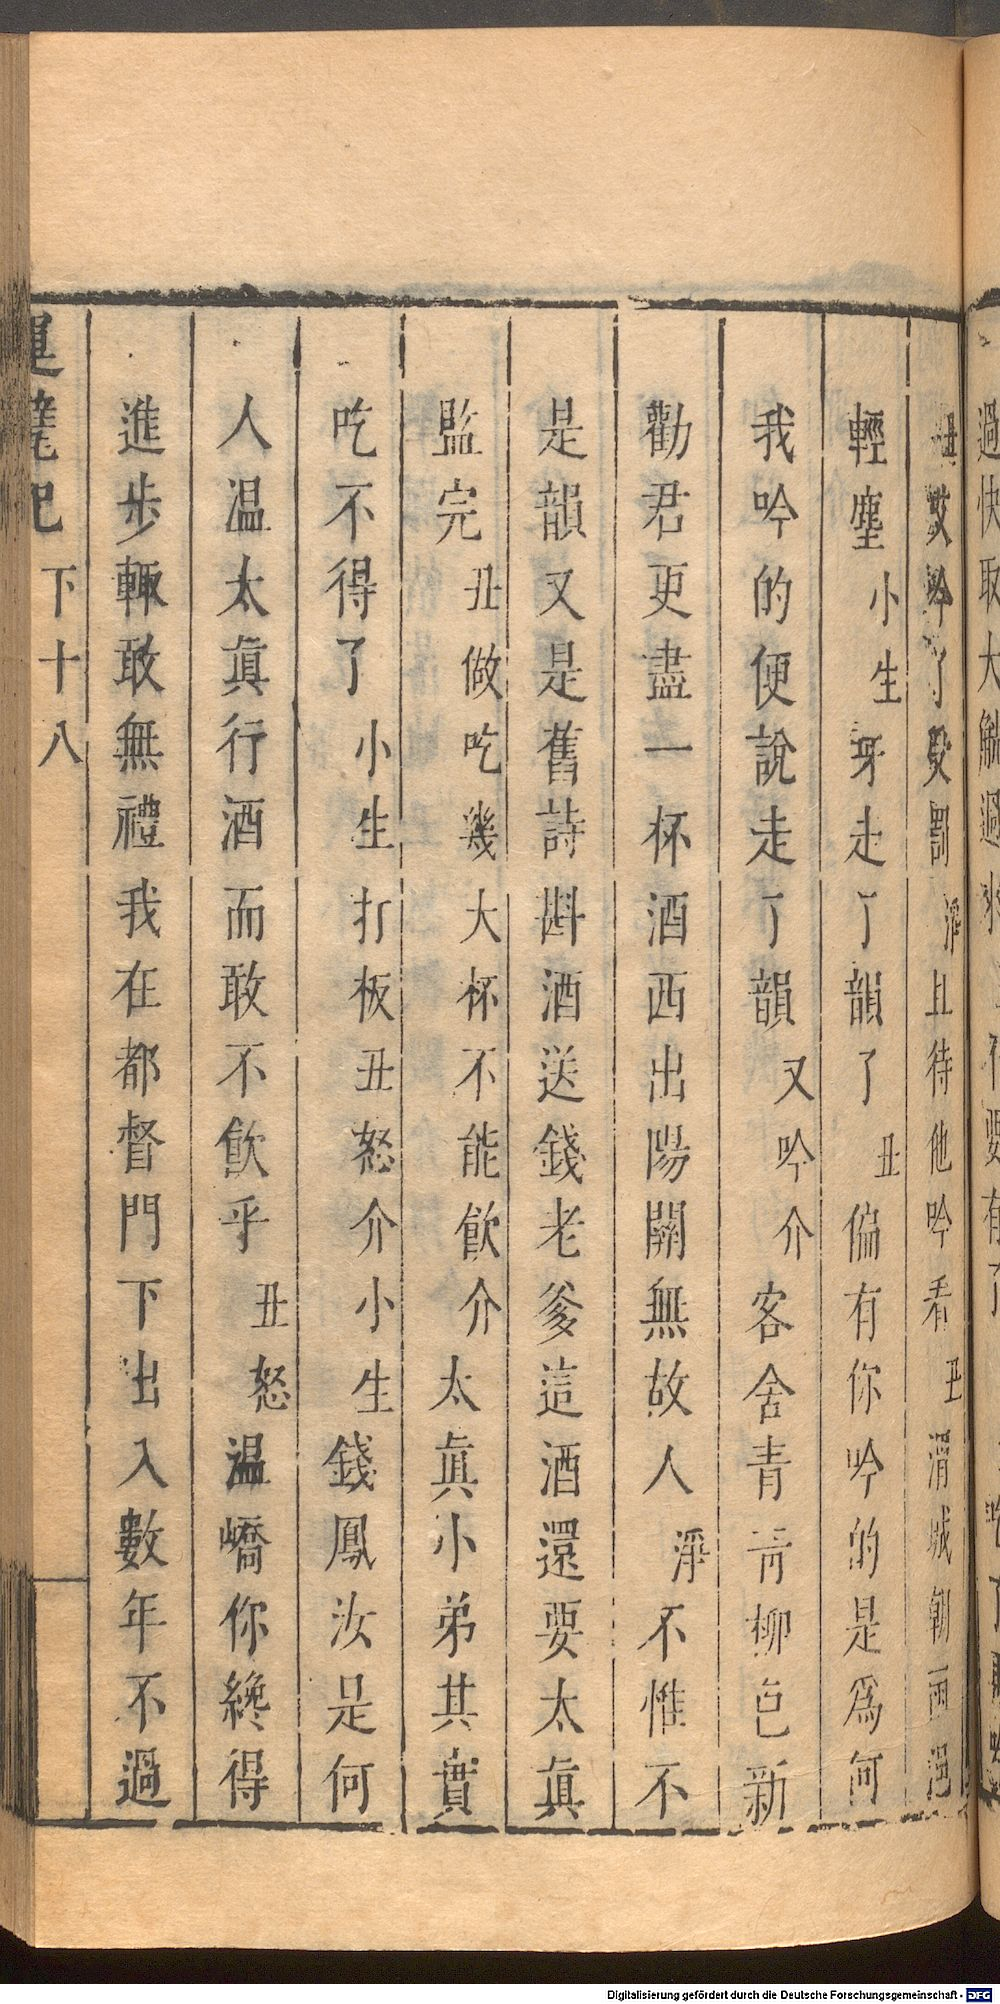 吟了受罰淨且待他吟看丑渭城朝雨浥
輕塵小生平走了韻了丑偏有你吟的是爲何
我吟的便說走了韻又吟介客舍青青柳色新
勸君更盡一杯酒西出陽關無故人淨不惟不
是韻又是舊詩斟酒送錢老爹這酒還要太眞
監完丑做吃幾大杯不能飮介太眞小弟其實
吃不得了小生打板丑怒介小生錢鳳汝是何
人温太眞行酒而敢不飮乎丑怒温嶠你纔得
進步輙敢無禮我在都督門下出入數年不過
運甓記 下十八
Digitalisierung gefördert durch die Deutsche Forschungsgemeinschaft - DFG